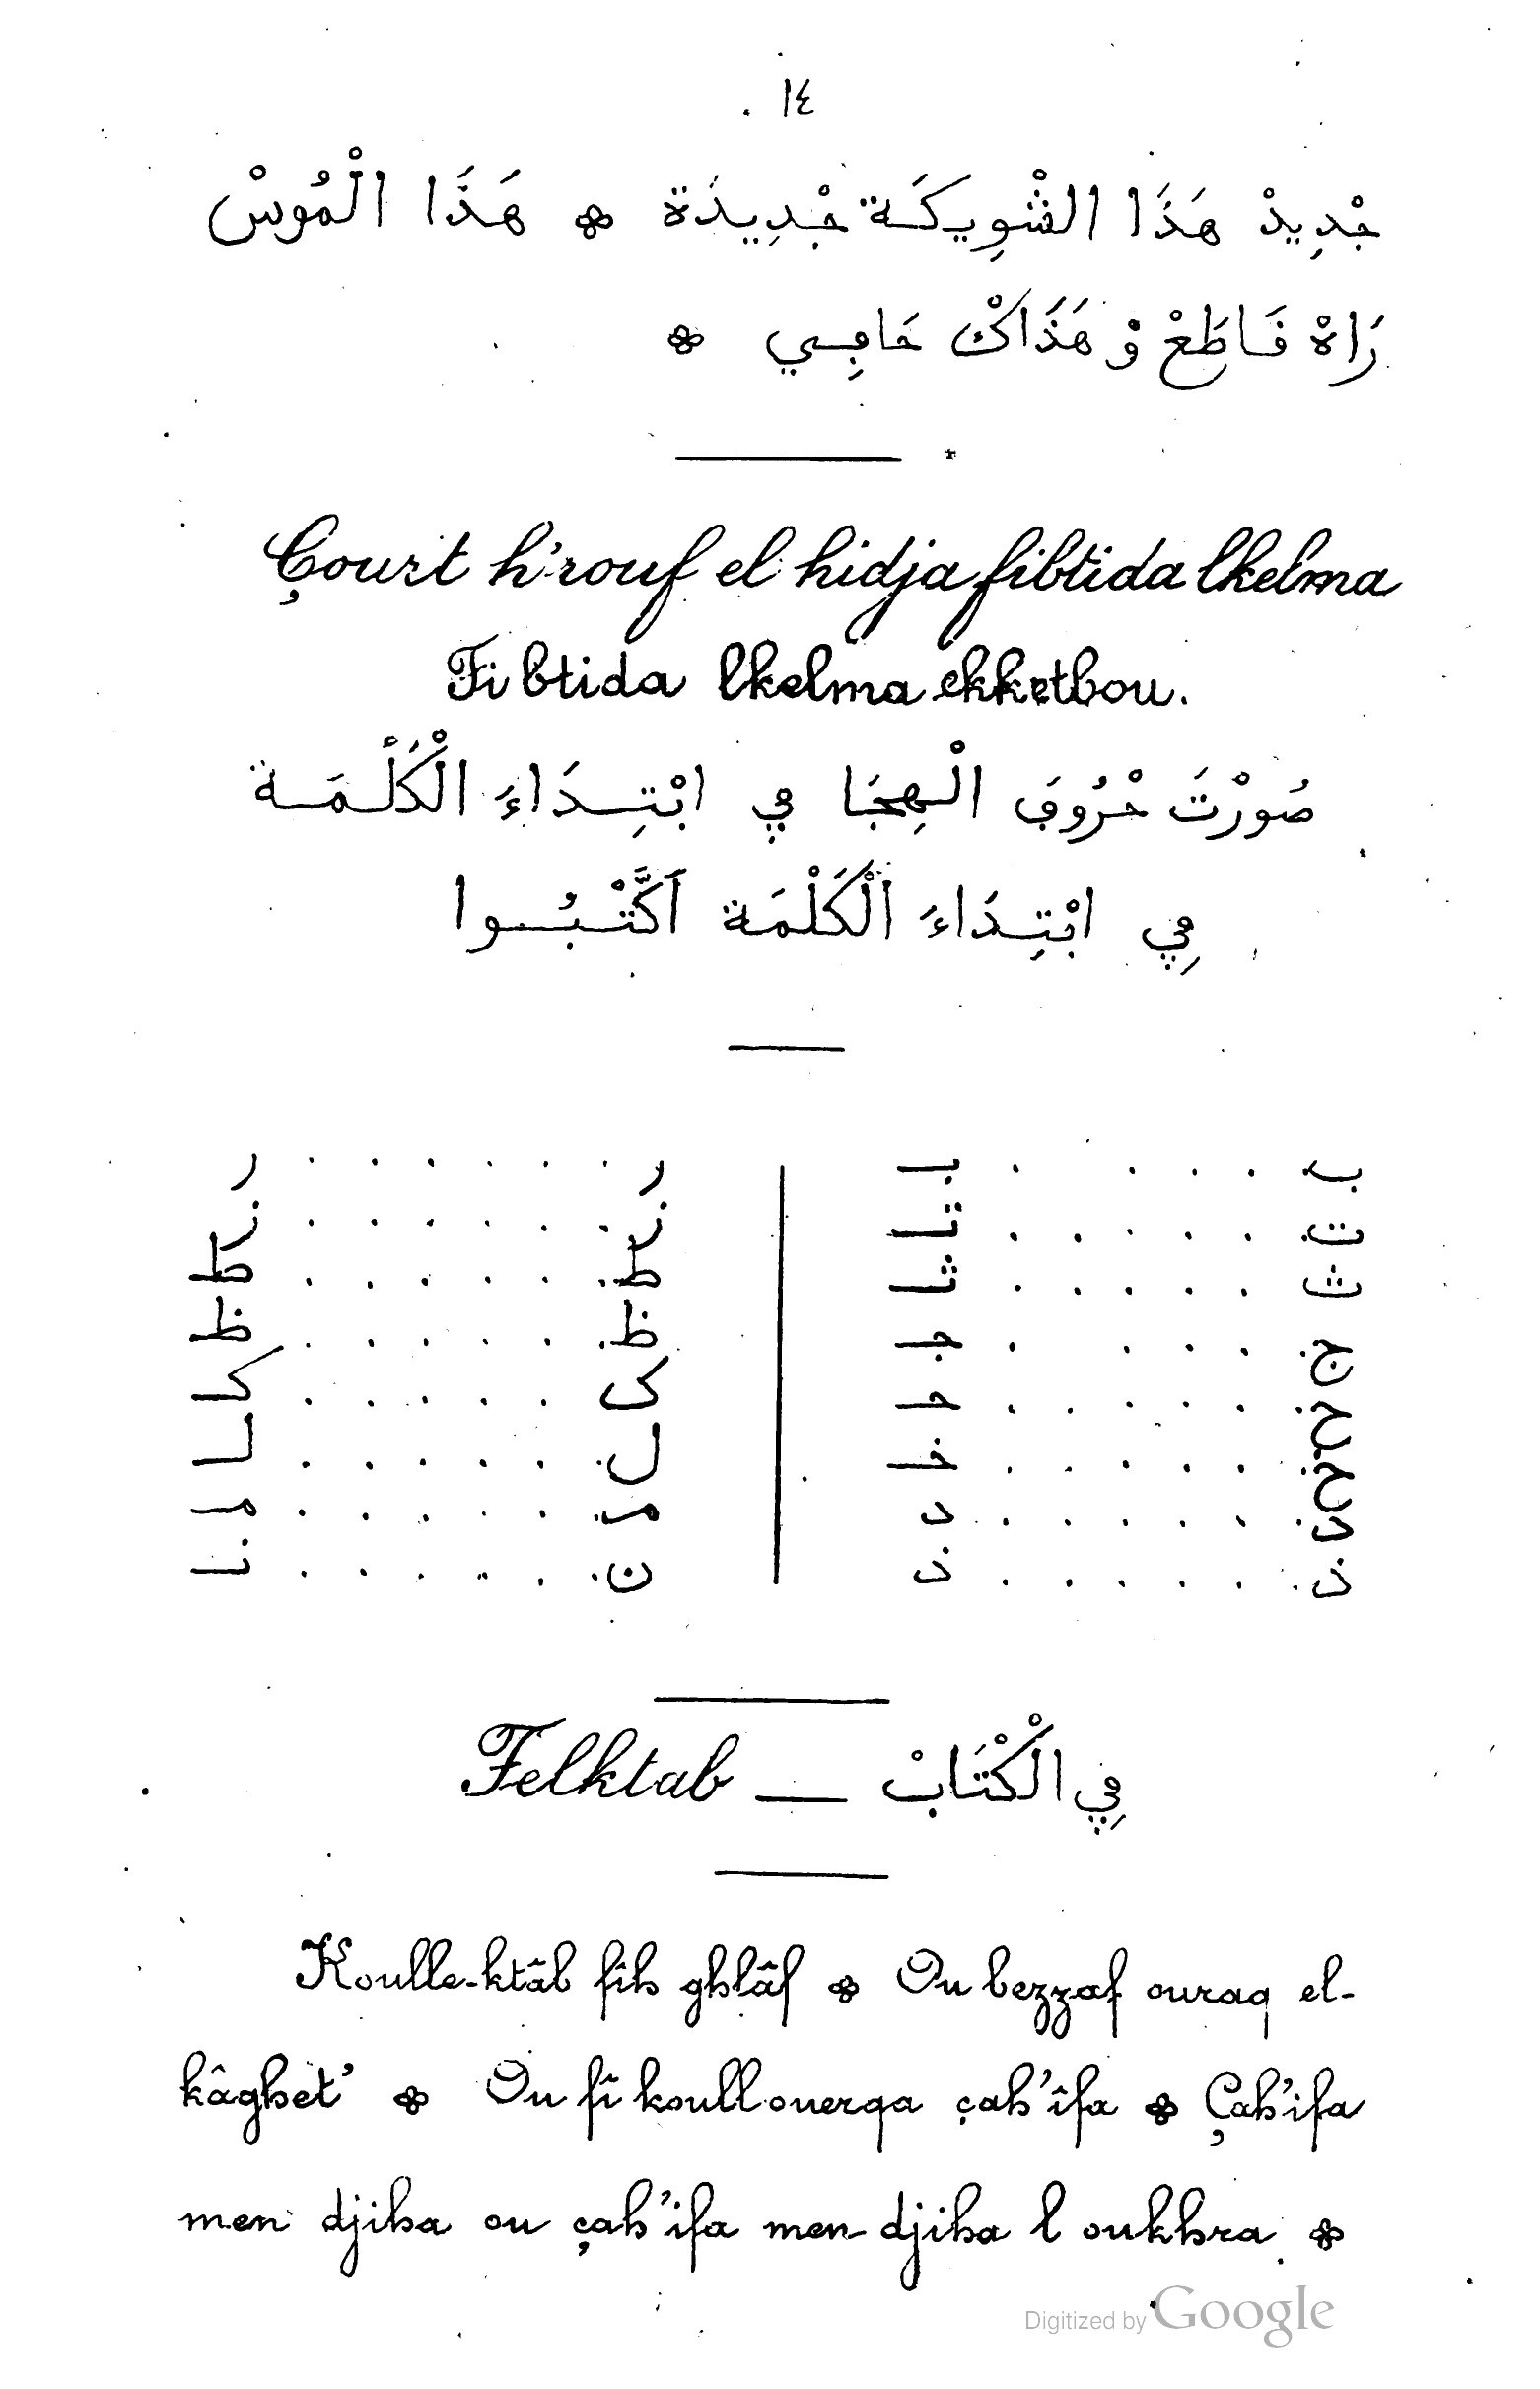 ١٤
جْدِيدْ هَذَا الشْوِيكَة جْدِيدَة ❉ هَذَا الْمُوسْ
رَاهْ فَاطَعْ وْ هَذَاكْ حَامِڢِي ❉
Çourt h'rouf el hidja fibtida lkelma
Fi btida lkelma ekketbou.
صُورْتَ حْرُوفَ الْهِجَا ڢي ابْتِدَاءَ الْكَلْمَة
ڢِي ابْتِدَاءَ الْكَلْمَة اَكَّتْبُوا
ب . . . . بـ | ر . . . . . . ر
ت . . . . . تـا | ز . . . . . ز
ث . . . . . ثـا | ط . . . . . ط
ج . . . . جـ | ظ . . . . . ظ
ح . . . . . حـ | ك . . . . . كـ
خ . . . . . خـ | ل . . . . . لـ
د . . . . . د | م . . . . . مـ
ذ . . . . . ذ | ن . . . . . نـ
Felktab — ڢِي الْكْتَابْ
Koulle-ktâb fîh ghlâf ❉ Ou bezzaf ouraq el-
kâghet' ❉ Ou fî koull ouerqa çah'îfa ❉ Çah'ifa
men djiha ou çah'ifa men djiha l oukhra ❉
Digitized by Google